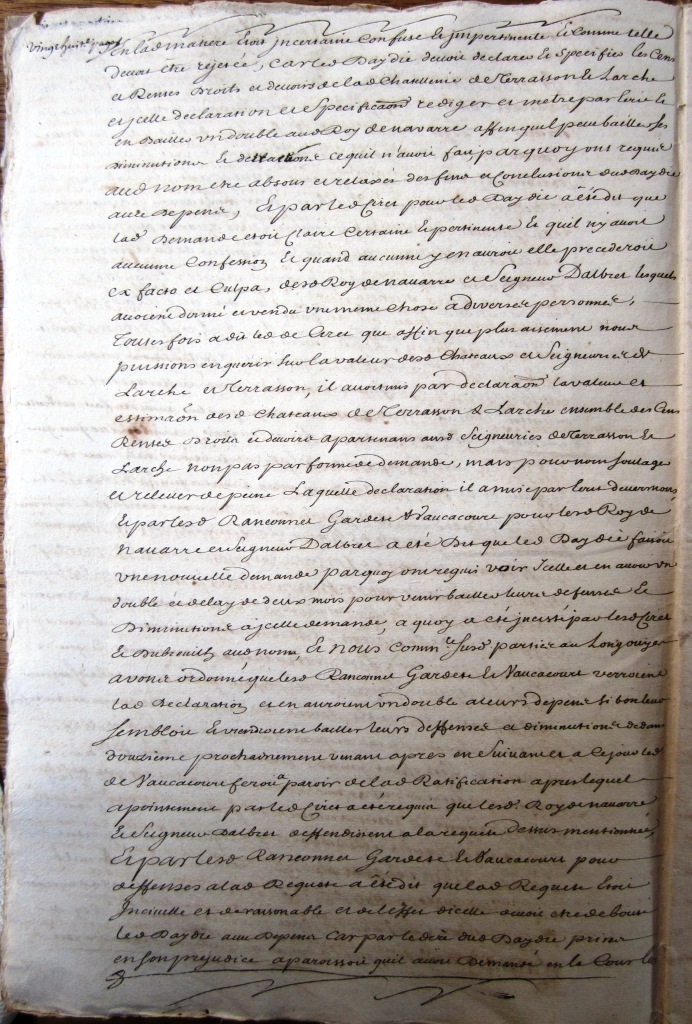 vingt huit pages
En lad matiere Etoit jncertaine Confuse Et jmpertinente Et Comme telle
devoit etre rejetée, Car led Daydie devoit declarer Et Specifier les Cens
et Rentes Droits et devoirs de lad Chatellenie de Terrasson Et Larche
et jcelle declaration et Specification rediger et metre par Ecrit Et
en Bailler un double aud Roy de navarre affin quil peut bailler Ses
diminutions Et ce quil n'avoit fait, par quoy ont requis
aud nom etre absous et relaxés des fins et Conclusions dud Daydie
avec Depens, Et par led Ciret pour led Daydie a été dit que
lad Demande etoit Claire Certaine Et pertinente Et quil ny avoit
aucune Confession Et quand aucune y en auroit elle precederoit
ex facto et Culpa, desd Roy de navarre et Seigneur Dalbret lesquels
avoient donné et vendu une meme chose a diverses personnes,
Toutes fois a dit led de Ciret que affin que plus aisement nous
puissions enquerir Sur la valeur desd Chateaux et Seigneuries de
Larche et Terrasson, il avoit mis par declaraon la valeur et
estimaon desd Chateaux de Terrasson & Larche ensemble des Cens
Rentes Droits et devoirs apartenans ausd Seigneuries de Terrasson Et
Larche non pas par forme de demande, mais pour nous soulager
et relever de peine Laquelle declaration il a mis par Ecrit devers nous
Et par lesd Ranconnet Gardese & Vaucacourt pour lesd Roy de
navarre et Seigneur Dalbret a été Dit que led Daydie faisoit
une nouvelle demande par quoy ont requis voir Jcelle et en avoir un
double et delay de deux mois pour venir bailler leurs defenses Et
Diminutions a jcelle demande, a quoy a été jncisté par lesd Ciret
Et Dubreuilh aud nom, Et nous Comm.re Susd parties au Long ouyes
avons ordonné que lesd Ranconnet Gardese Et Vaucacourt verroient
lad Declaration et en auroient un double a leurs depens Si bon leur
Sembloit Et viendroient bailler leurs deffenses et diminutions dedans
douzieme prochainement venant apres en Suivant et a ce jour led
de Vaucacourt feroit aparoir de lad Ratification apres lequel
apointement par led Ciret a eté requis que lesd. Roy de navarre
Et Seigneur Dalbret deffendissent a la requete dessus mentionnée,
Et par lesd Ranconnet Gardese Et Vaucacourt pour
deffenses a lad Requete a été dit que lad Requete Etoit
Jnciville et deraisonnable et de l'effet dicelle devoit etre debouté
led Daydie avec Depens Car par le dire dud Daydie prins
en Son prejudice aparoissoit quil avoit Demandé en la Cour